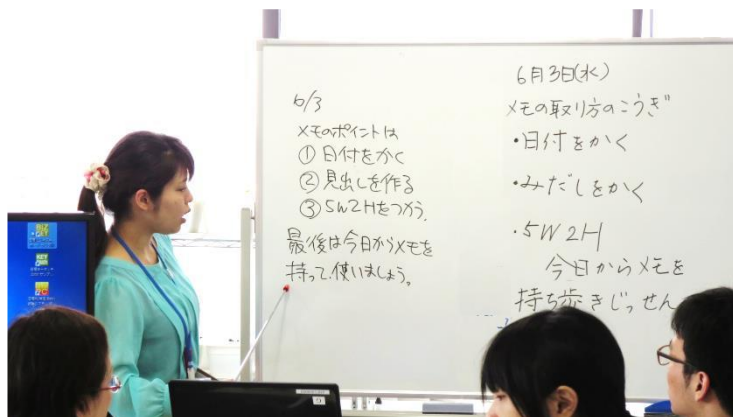 6/3
メモのポイントは
① 日付をかく
② 見出しを作る
③ 5W2Hをつかう。
最後は今日からメモを
持って、使いましょう。
6月3日(水)
メモの取り方のこうぎ
・日付をかく
・みだしをかく
・5W2H
今日からメモを
持ち歩きじっせん